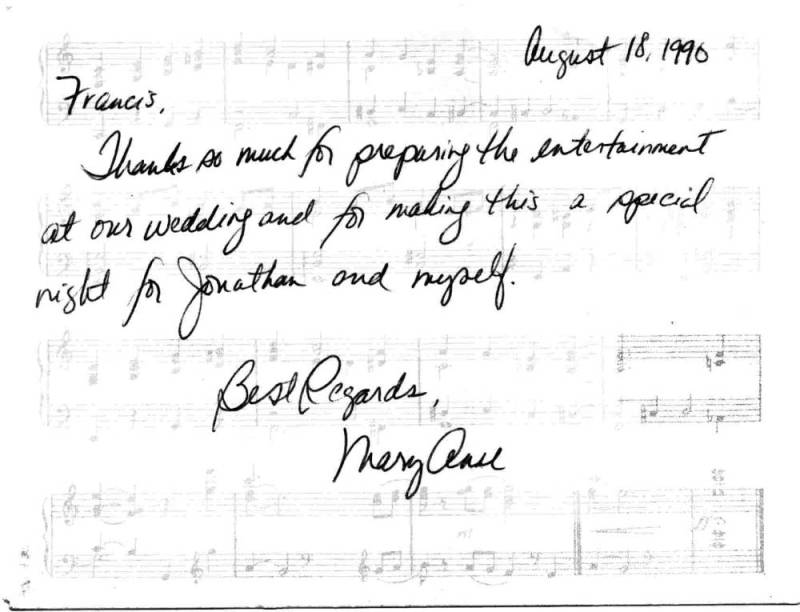 August 18, 1990
Francis,
Thanks so much for preparing the entertainment
at our wedding and for making this a special
night for Jonathan and myself.
Best Regards,
Mary Anne